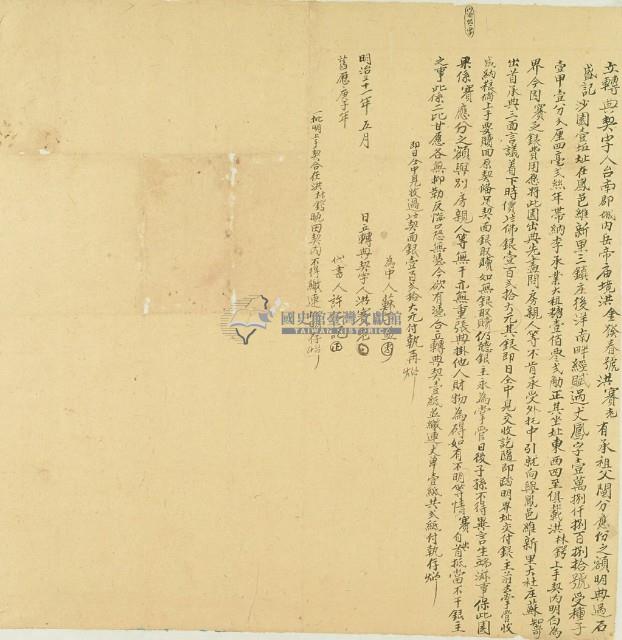 立轉典契字人台南郡城內岳帝庙境洪金發春號洪賽老有承祖父鬮分應份之額明典過石
盛記沙園壹坵址在鳳邑維新里三鎮庄後洋南畔經賦過丈鳳字壹萬捌仟捌百捌拾號受種子
壹甲壹分久厘四毫弍絲年帶納李承業大租穀壹佰零弍觔正其坐址東西四至俱載洪林鍔上手契內明白為
界今因賽乏銀費用應將此園出典先盡問房親人等不肯承受外托中引就向與鳳邑維新里大社庄蘇
出首承典三面言議着下時價佛銀壹百弍拾大元其銀即日仝中見交收訖隨即踏明界址交付銀主前去掌管收
成納租備上手要贖回原契備足契面銀取贖如無銀取贖仍聽銀主永為掌管日後子孫不得異言生端滋事保此園
果係賽應分之額與別房親人等無干亦無重張典掛他人財物為碍如有不明等情賽自出首抵當不干銀主
之事此係二比甘愿各無抑勒反悔口恐無憑今欲有憑合立轉典契壹紙並繳連丈單壹紙共弍紙付執存炤
即日仝中見收過契面銀壹百弍拾大元付執再炤
為中人蘇
明治三十一年五月 日立轉典契字人洪賽老
舊歷庚子年 代書人許記
一批明上手契合在洪林鍔
國史館臺灣文獻館
TAIWAN HISTORICA